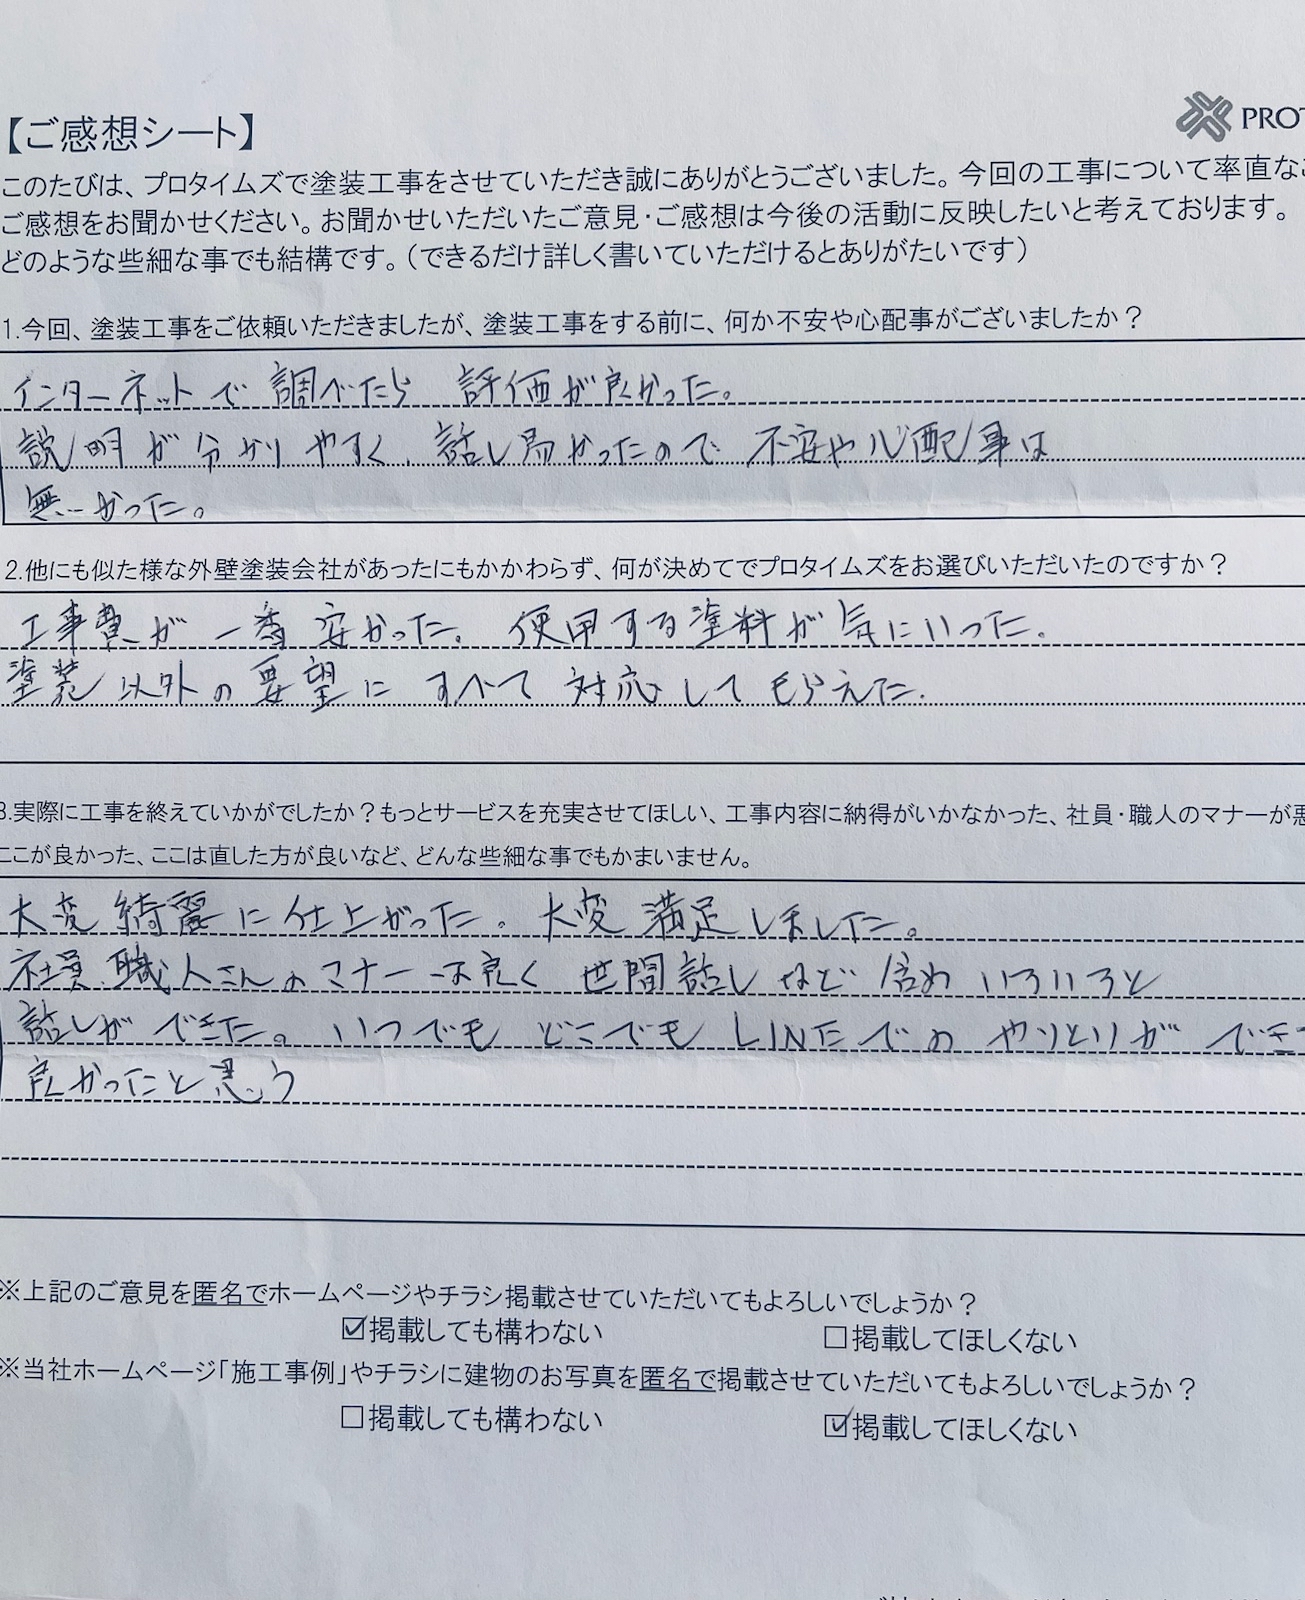 【ご感想シート】
PROT
このたびは、プロタイムズで塗装工事をさせていただき誠にありがとうございました。今回の工事について率直なご
ご感想をお聞かせください。お聞かせいただいたご意見・ご感想は今後の活動に反映したいと考えております。
どのような些細な事でも結構です。（できるだけ詳しく書いていただけるとありがたいです）
1.今回、塗装工事をご依頼いただきましたが、塗装工事をする前に、何か不安や心配事がございましたか？
インターネットで調べたら 評価が良かった。
説明が分かりやすく、話し易かったので 不安や心配事は
無かった。
2.他にも似た様な外壁塗装会社があったにもかかわらず、何が決めてでプロタイムズをお選びいただいたのですか？
工事費が一番安かった。使用する塗料が気にいった。
塗装以外の要望にすべて対応してもらえた。
3.実際に工事を終えていかがでしたか？もっとサービスを充実させてほしい、工事内容に納得がいかなかった、社員・職人のマナーが悪
ここが良かった、ここは直した方が良いなど、どんな些細な事でもかまいません。
大変綺麗に仕上がった。大変満足しました。
社員、職人さんのマナーは良く 世間話しなど含めいろいろと
話しができた。いつでもどこでもLINEでのやりとりができ
良かったと思う
※上記のご意見を匿名でホームページやチラシ掲載させていただいてもよろしいでしょうか？
☑掲載しても構わない □掲載してほしくない
※当社ホームページ「施工事例」やチラシに建物のお写真を匿名で掲載させていただいてもよろしいでしょうか？
□掲載しても構わない ☑掲載してほしくない